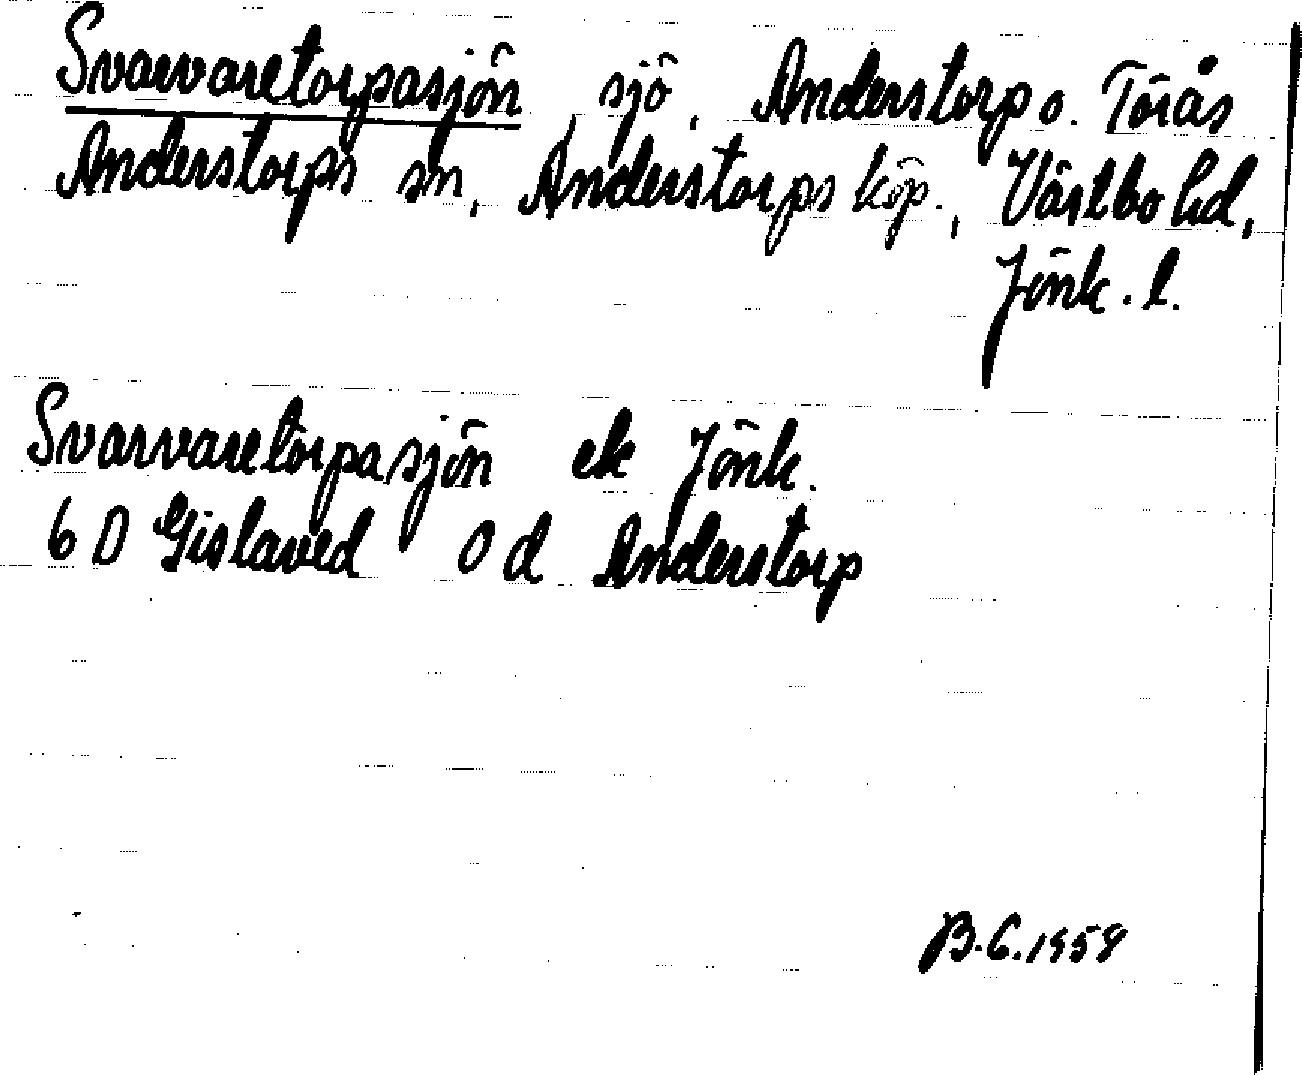 Svarvaretorpasjön, sjö, Anderstorp o. Törås
Anderstorps sn, Anderstorps köp., Västbo hd,
Jönk. l.
Svarvaretorpasjön ek Jönk.
6 D Gislaved 0 d Anderstorp
B.C. 1959